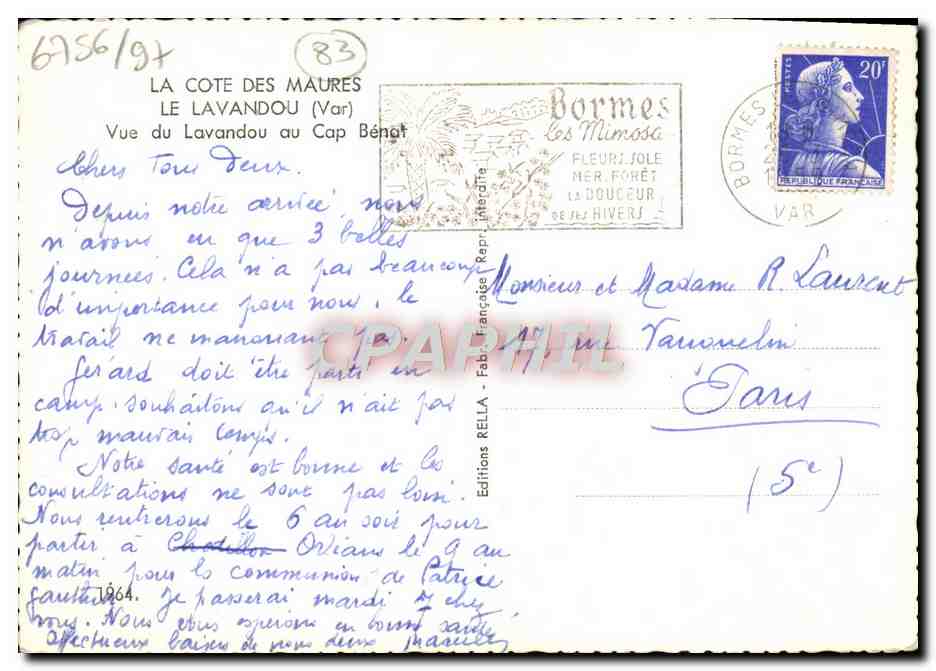 6756/97
83
LA COTE DES MAURES
LE LAVANDOU (Var)
Vue du Lavandou au Cap Bénat
Bormes
les Mimosa
FLEURS.SOLE
MER.FORÊT
LA DOUCEUR
DE SES HIVERS
BORMES
VAR
POSTES
20F
REPUBLIQUE FRANÇAISE
Chers Tous Deux.
Depuis notre arrivée, nous
n'avons eu que 3 belles
journées. Cela n'a pas beaucoup
d'importance pour nous, le
travail ne manquant pas.
Gérard doit être parti en
camp. souhaitons qu'il n'ait pas
trop mauvais temps.
Notre santé est bonne et les
consultations ne sont pas loin.
Nous rentrerons le 6 au soir pour
partir à Chatillon Orléans le 9 au
matin pour la communion de Patrice
Gauthier. Je passerai mardi chez
vous. Nous vous espérons en bonne santé
Affectueux baisers de nous deux
1964.
Editions RELLA - Fabr. Française - Repr. interdite
Monsieur et Madame R. Laurent
17, rue Vauquelin
Paris
(5e)
CPAPHIL